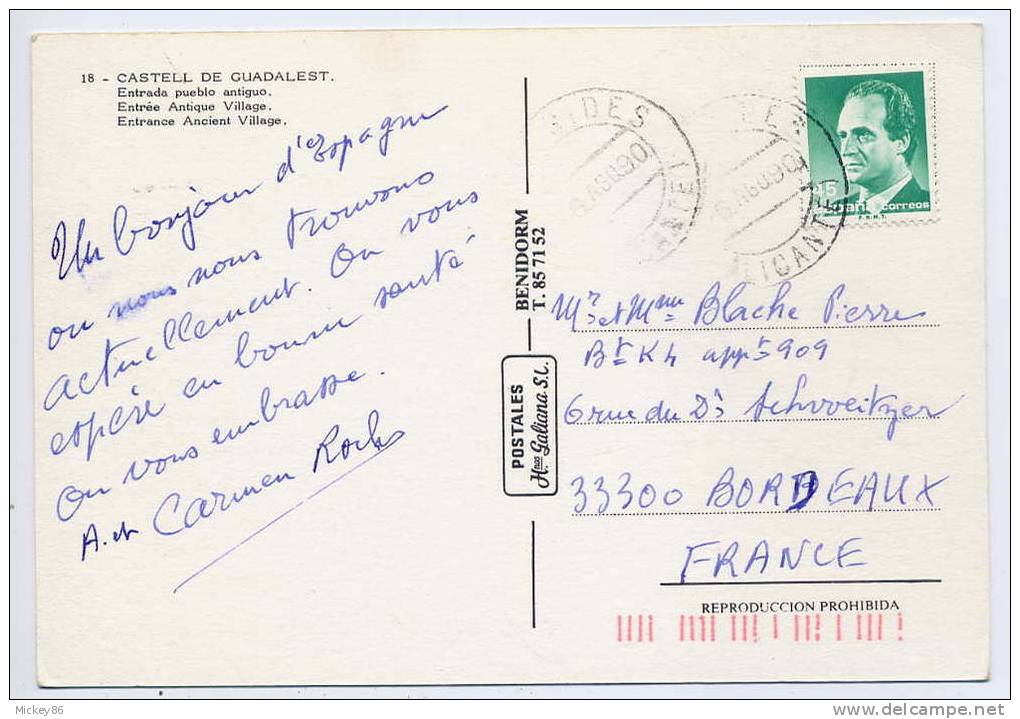 18 - CASTELL DE GUADALEST.
Entrada pueblo antiguo.
Entrée Antique Village.
Entrance Ancient Village.
Un bonjour d'Espagne
ou nous nous trouvons
actuellement. On vous
espère en bonne santé
On vous embrasse.
A. et Carmen Roch
BENIDORM
T. 85 71 52
POSTALES
Hnos Galiana S.L.
ALICANTE
45
España correos
Mr et Mme Blache Pierre
Bt K4 appt 909
6 rue du Dr Schweitzer
33300 BORDEAUX
FRANCE
REPRODUCCION PROHIBIDA
Mickey86
delcampe.net